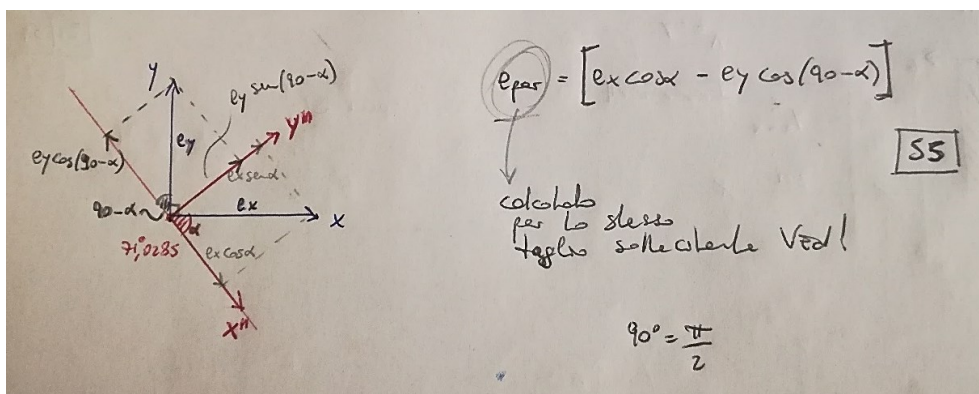 y
ey sen(90-α)
y"
ey
ey cos(90-α)
ex senα
90-α
ex
x
α
71,0285
ex cosα
x"
epar = [ex cosα - ey cos(90-α)]
S5
calcolato
per lo stesso
taglio sollecitante VEd!
90° = π/2